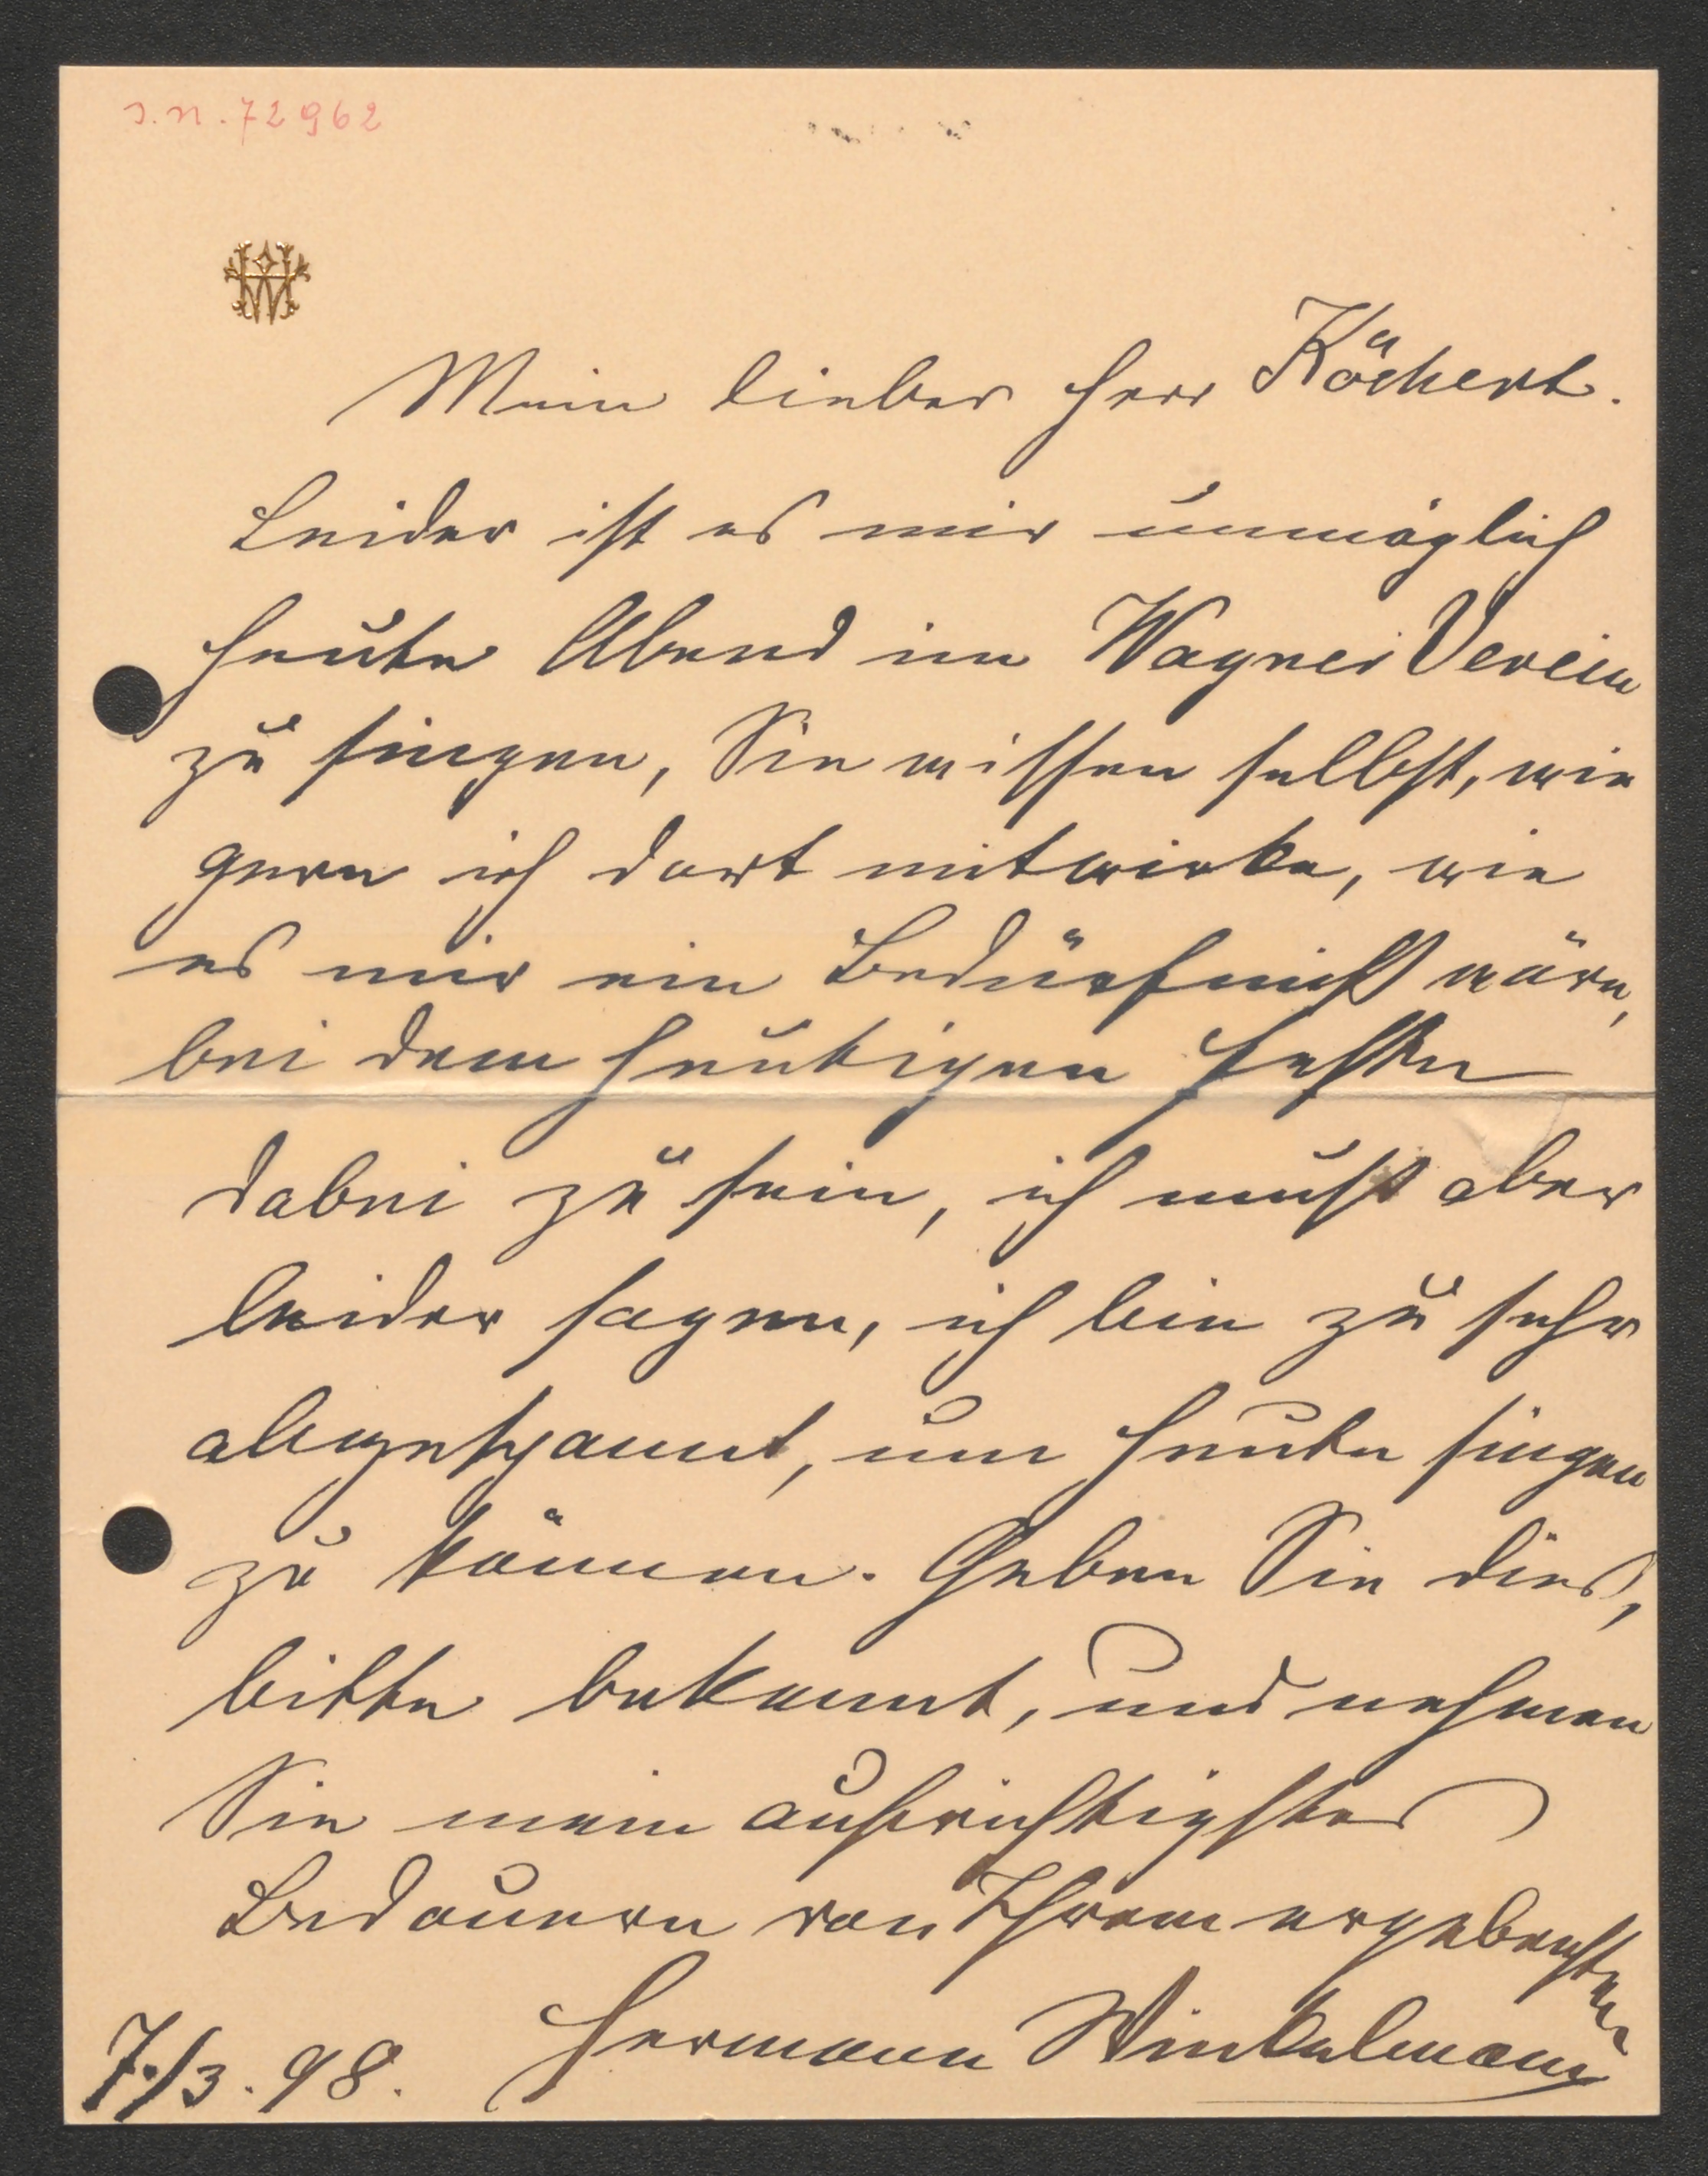 I.N. 72962
HW
Mein lieber Herr Köchert.
Leider ist es mir unmöglich
heute Abend im Wagner Verein
zu singen, Sie wissen selbst, wie
gern ich dort mitwirke, wie
es mir ein Bedürfniß wäre,
bei dem heutigen Feste
dabei zu sein, ich muß aber
leider sagen, ich bin zu sehr
abgespannt, um heute singen
zu können. Geben Sie dies,
bitte bekannt, und nehmen
Sie mein aufrichtigstes
Bedauern von Ihrem ergebensten
Hermann Winkelmann
7./3.98.